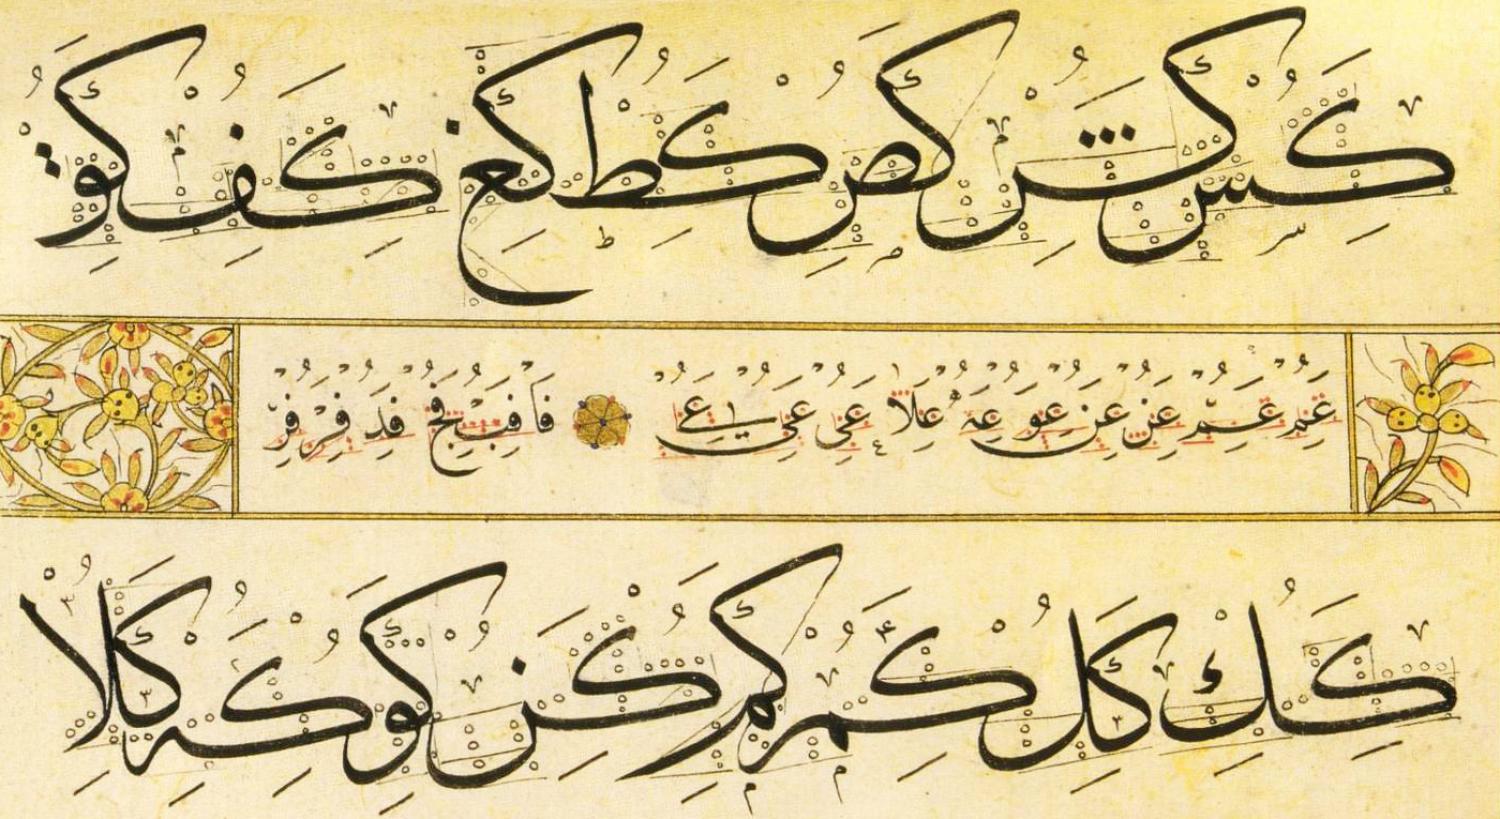 كس كش كص كط كغ كف كق
عم عم عن عن عو عه علا عى عى فا فب فج فد فر فر
كك كل كم كم كن كو كه كلا